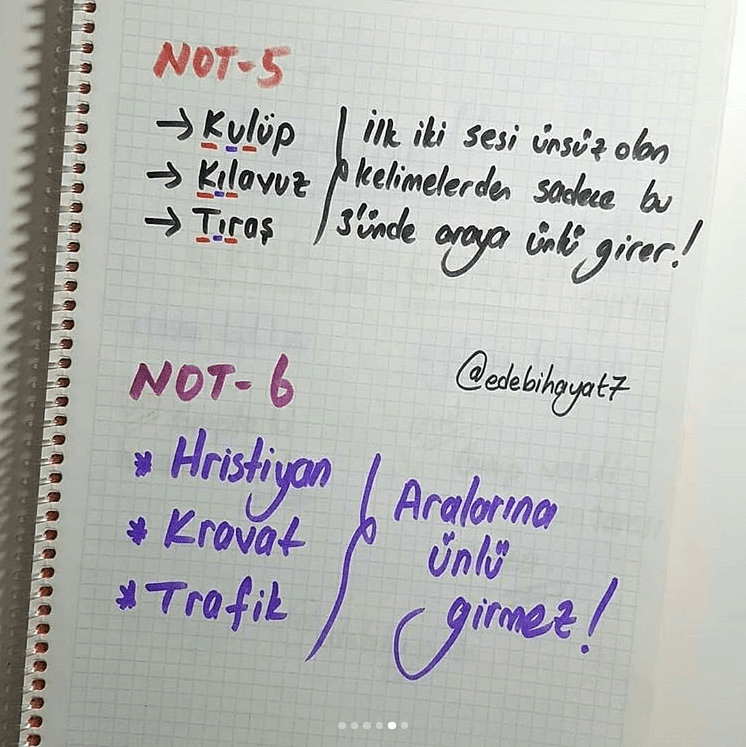 NOT-5
→ Kulüp
→ Kılavuz
→ Tıraş
ilk iki sesi ünsüz olan
kelimelerden sadece bu
3'ünde araya ünlü girer!
@edebihayat7
NOT-6
* Hristiyan
* Kravat
* Trafik
Aralarına
ünlü
girmez!